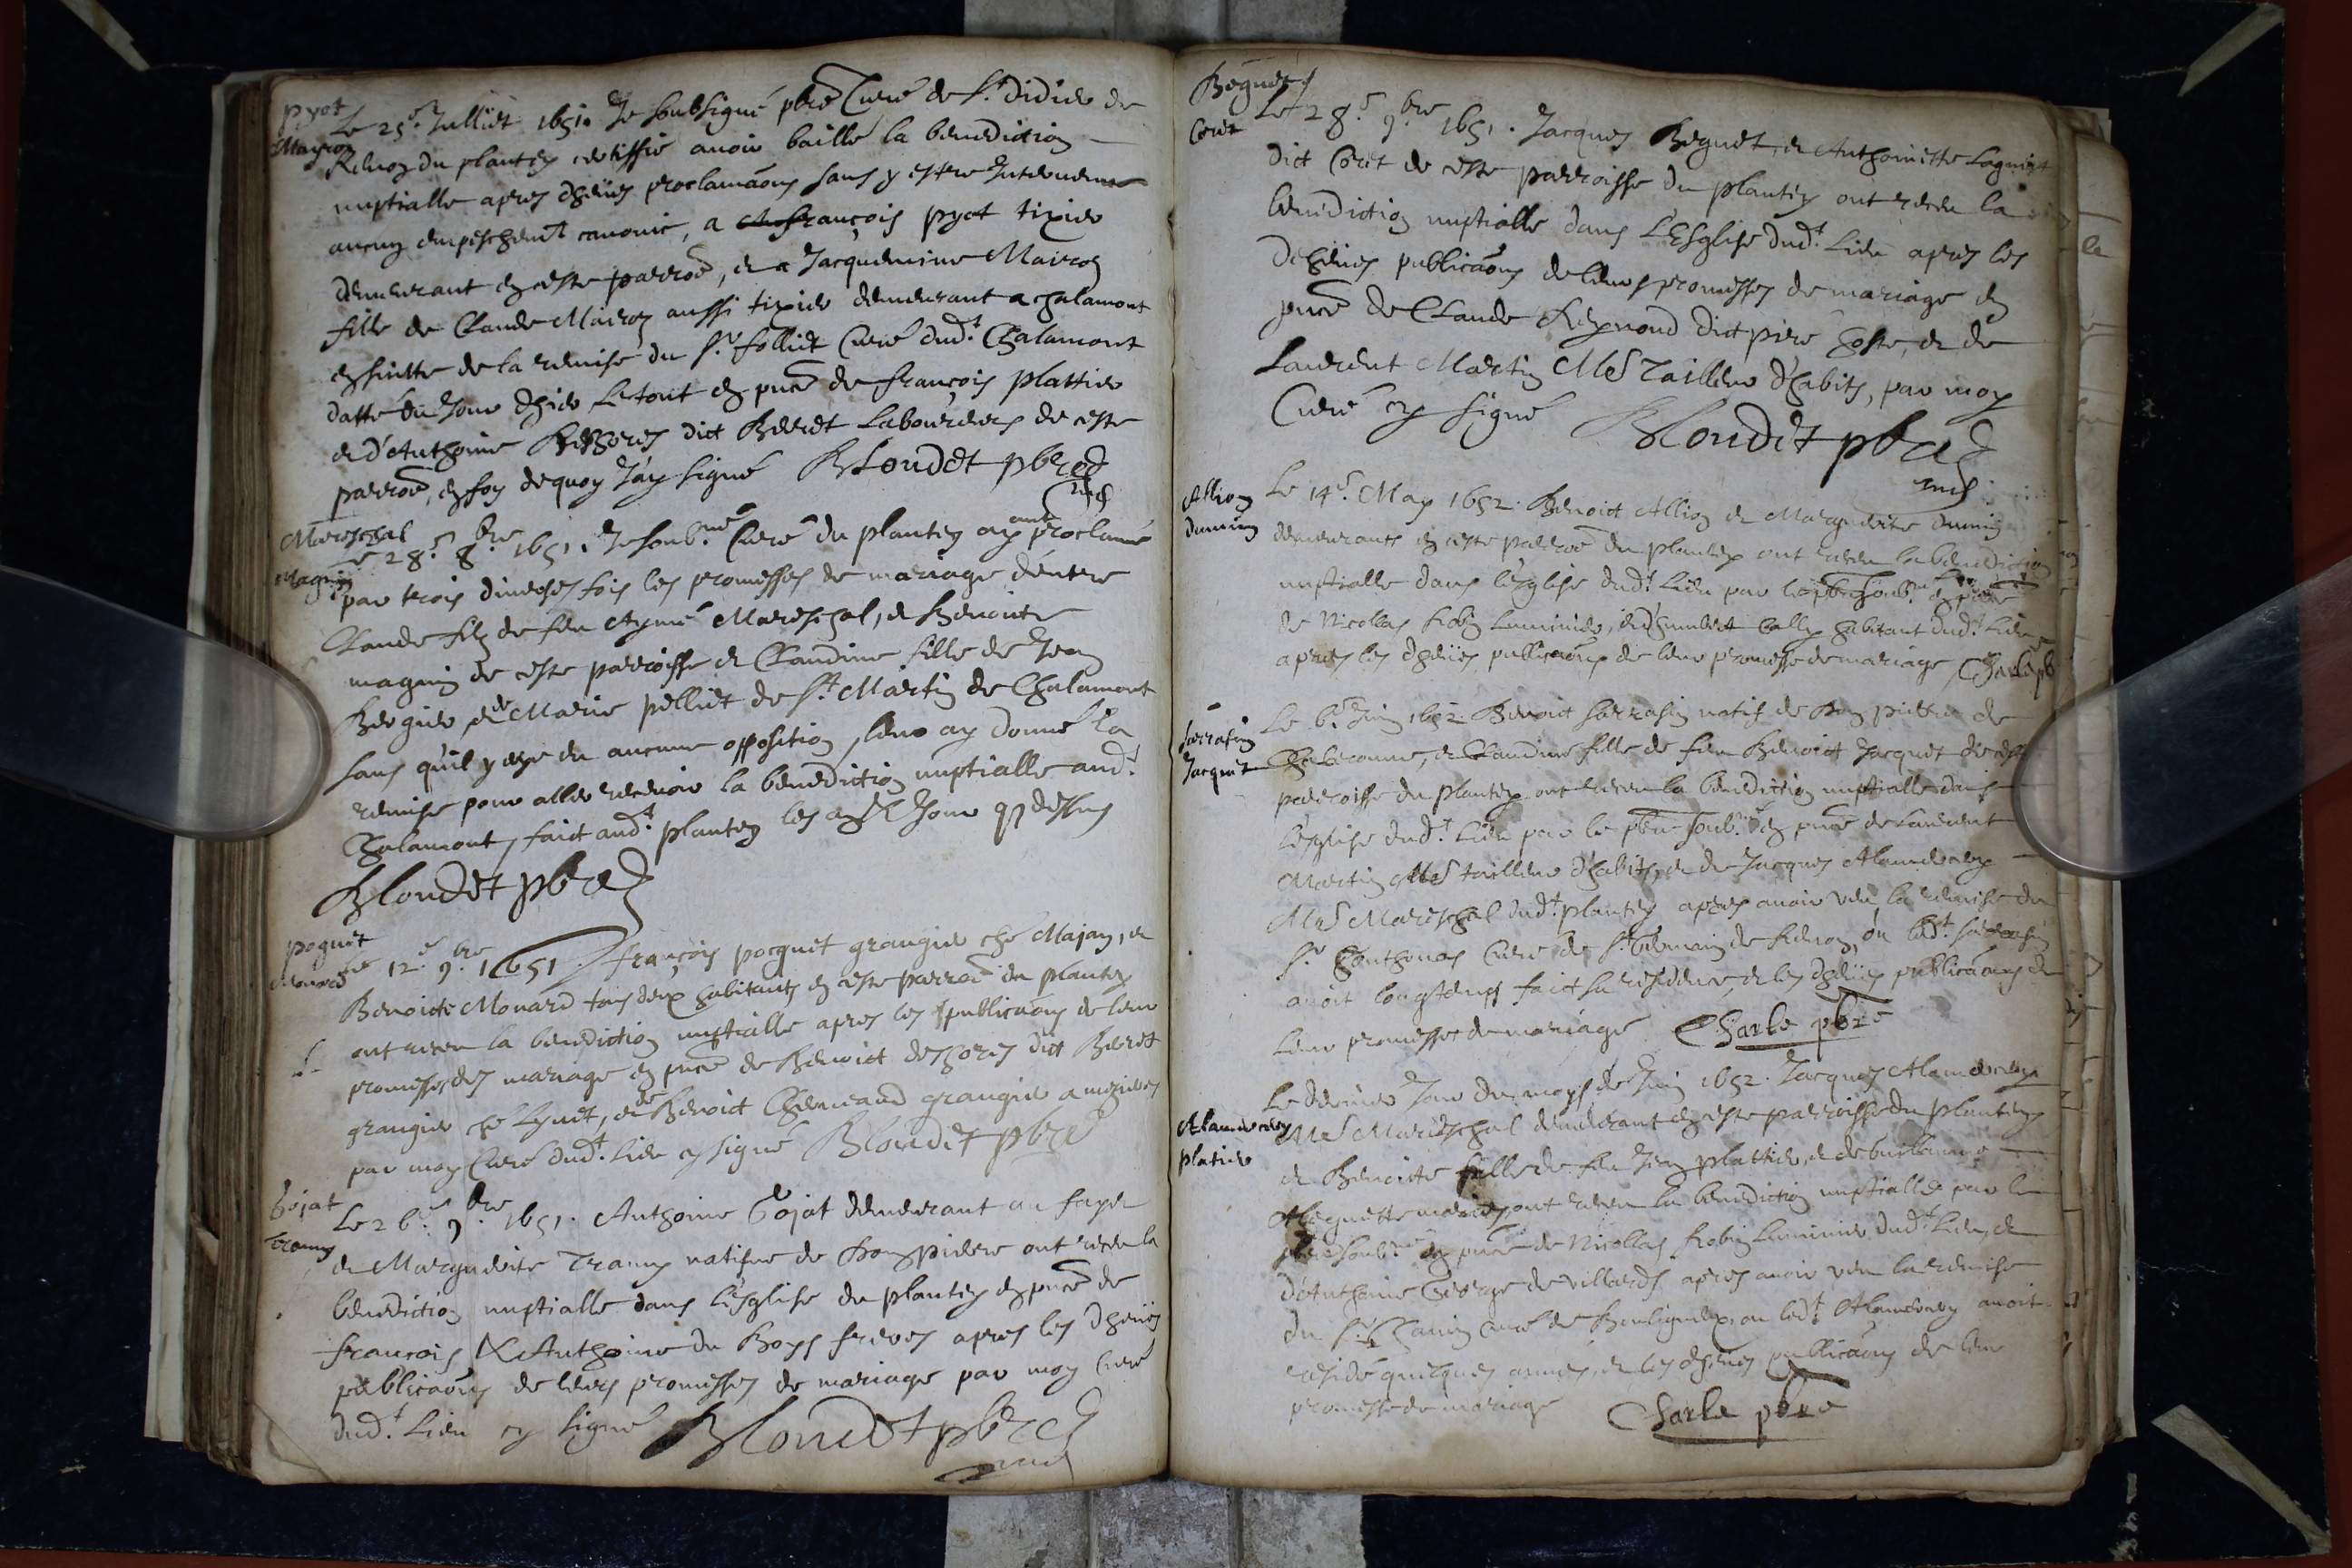 pyot
Mayron
Le 25.e Julliet 1651. Je soubsigné pbre Curé de St didier de
Renoz du plantey certiffie avoir baillé la benediction
nuptialle apres dheües proclamaons sans y estre Intervenu
aucun empeschemt canonic, a François pyot tixier
demeurant en ceste parroe, et a Jacquemine Mairon
fille de Claude Mairon aussi tixier demeurant a chalamont
ensuitte de la remise du Sr folliet Curé dudt Chalamont
datté du Jour d'hier Le tout en pnce de françois plattier
et d'Anthoine dict Berret Laboureurs de ceste
parroe, en foy dequoy J'ay signé Blondet pbre
Mareschal
Magnin
Le 28.e 8bre 1651. Je soub.né Curé du plantey ayant proclamé
par trois diverses fois les promesses de mariage d'entre
Claude filz de feu Aymé Mareschal, et Benoite
magnin de ceste parroisse et Claudine fille de Jean
Bergier, et de Marie pelliet de St Martin de Chalamont
sans qu'il y aye eu aucune opposition, leur ay donné la
remise pour aller recevoir la benediction nuptialle audt
Chalamont, faict audt plantey les an et Jour que dessus
Blondet pbre
poquet
Monard
Le 12.e 9.bre 1651. François pocquet grangier ché Majan, et
Benoicte Monard tous deux habitants en ceste parroe du plantey
ont receu la benediction nuptialle apres les publicaons de leur
promesses de mariage en pnce de Benoict dict Berret
grangier ché Lynet, et de Benoict Cheneaud grangier a mezieres
par moy Curé dudt Lieu cy signé Blondet pbre
Gojat
Tranny
Le 26.e 9bre 1651. Anthoine Gojat demeurant au fayet
et Marguerite Tranny natifve de Dompiere ont receu la
benediction nuptialle dans l'esglise du plantey en pnce de
françois & Anthoine du Boys freres apres les dheües
publicaons de leurs promesses de mariage par moy Curé
dudt Lieu cy signé Blondet pbre
Beguet
Coret
Le 28.e 9.bre 1651. Jacques Beguet, et Anthoinette Lagniet
dict Coret de ceste parroisse du plantey ont receu la
benediction nuptialle dans L'Esglise dudt Lieu apres les
deheües publicaons de leurs promesses de mariage en
pnce de Claude Reymond dict piere hoste, et de
Laurent Martin Me Tailleur d'habits, par moy
Curé cy signé Blondet pbre
Allion
dumin
Le 14.e May 1652. Benoict Allion et Marguerite dumin
demeurants en ceste parroe du plantey ont receu la benediction
nuptialle dans l'esglise dudt Lieu par le pbre soub.né en pnce
de Nicollas Robin Luminier, et d'humbert Cally habitant dudt Lieu
apres les dheües publicaons de leur promesse de mariage Charle pb
Sarrasin
Jacquet
Le 6.e Juin 1652. Benoict Sarrasin natif de Dompierre de
Chalaronne, et Claudine fille de feu Benoict Jacquet de ceste
parroisse du plantey ont receu la benediction nuptialle dans
l'esglise dudt Lieu par le pbre soub.né en pnce de Laurent
Martin Me tailleur d'habits, et de Jacques Alamercery
Me Mareschal dudt plantey apres avoir veu la remise du
Sr Curé de St Germain de Renon, ou ledt Sarrasin
avoit longtemps faict sa residence, et les dheües publicaons de
Leur promesses de mariage Charle pbre
Alamercery
platier
Le dernier Jour du moys de Juin 1652. Jacques Alamercery
Me Mareschal demeurant en ceste parroisse du plantey
et Benoicte fille de feu Jean plattier, et de Guillauma
mariés ont receu la benediction nuptialle par le
pbre soub.né en pnce de Nicollas Robin Luminier dudt Lieu, et
d'Anthoine George de villards apres avoir veu la remise
du Sr curé de Bouligneux, ou ledt Alamercery avoit
residé quelques années, et les dheües publicaons de leur
promesse de mariage Charle pbre